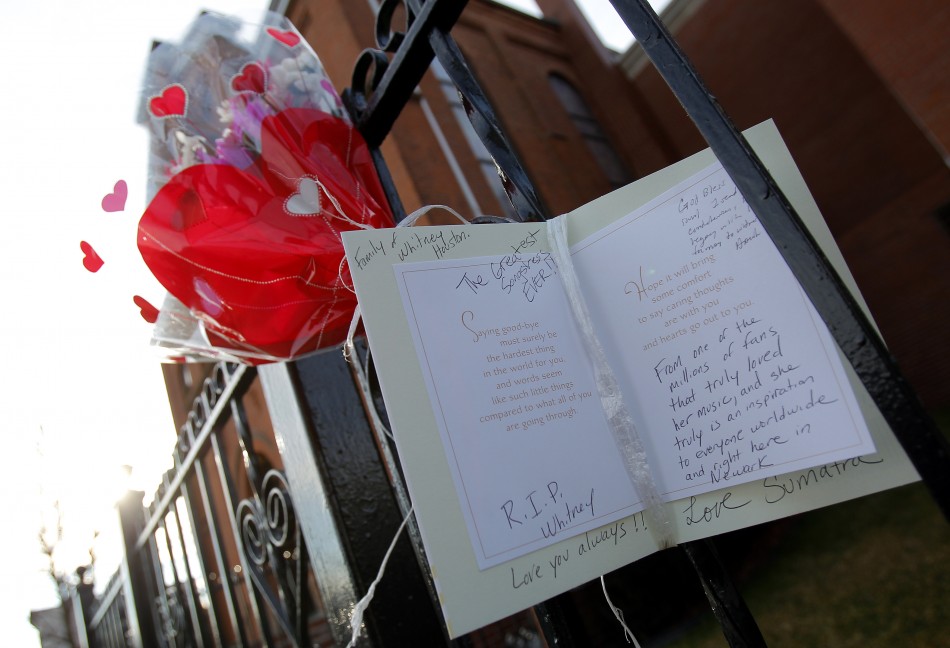 Family of
Whitney
Houston.
The Greatest
Songstress
EVER!!
Saying good-bye
must surely be
the hardest thing
in the world for you,
and words seem
like such little things
compared to what all of you
are going through.
R.I.P.
Whitney
Love you always!!
God Bless
Hope it will bring
some comfort
to say caring thoughts
are with you
and hearts go out to you.
From one of the
millions of fans
that truly loved
her music, and she
truly is an inspiration
to everyone worldwide
and right here in
Newark
Love Sumatra